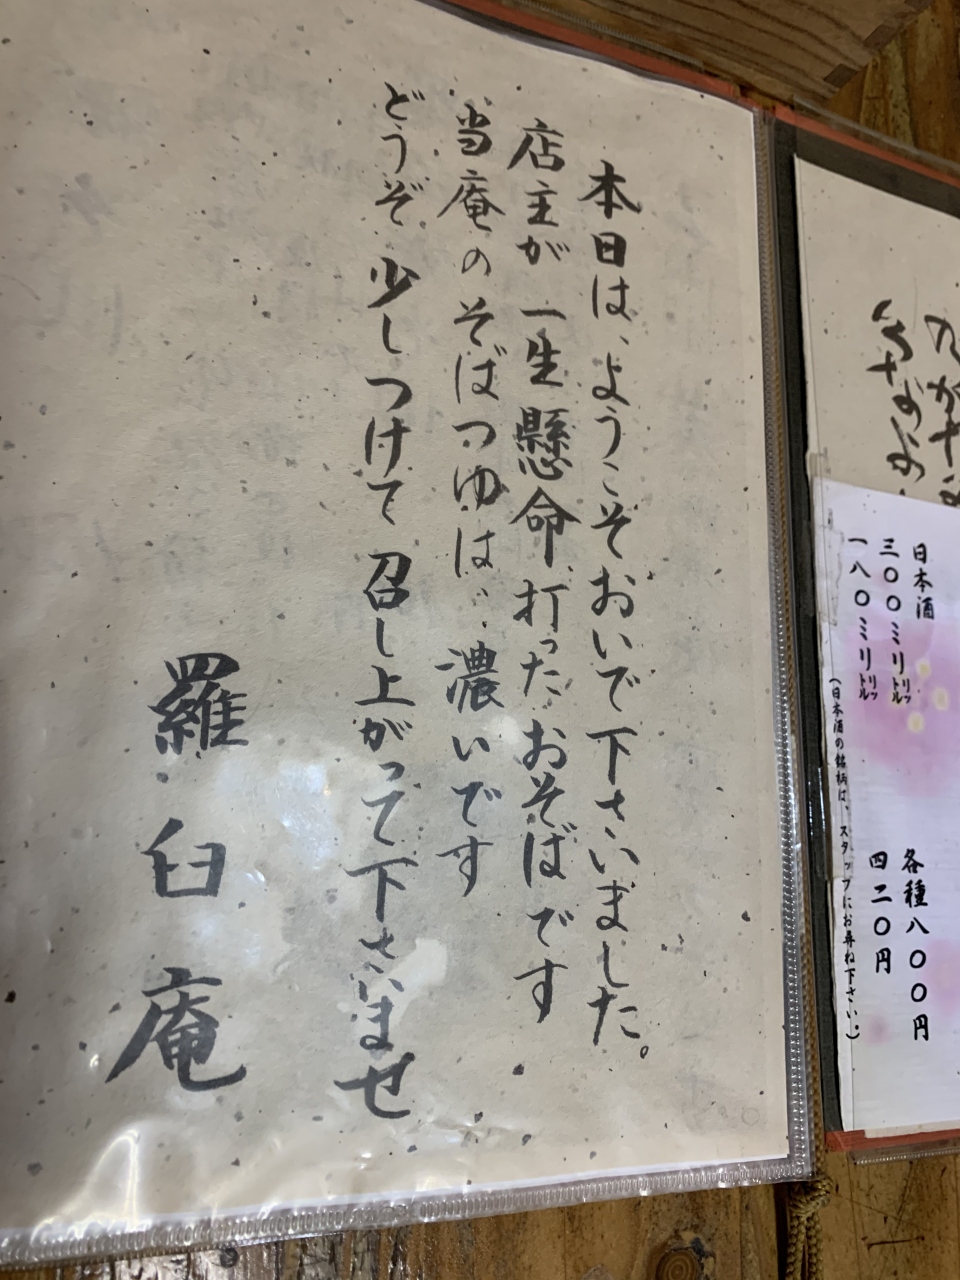 日本酒
三〇〇ミリリットル 各種八〇〇円
一八〇ミリリットル 四二〇円
(日本酒の銘柄は、スタッフにお尋ね下さい。)
本日は、ようこそおいで下さいました。
店主が一生懸命打ったおそばです
当庵のそばつゆは、濃いです
どうぞ少しつけて召し上がって下さいませ
羅臼庵